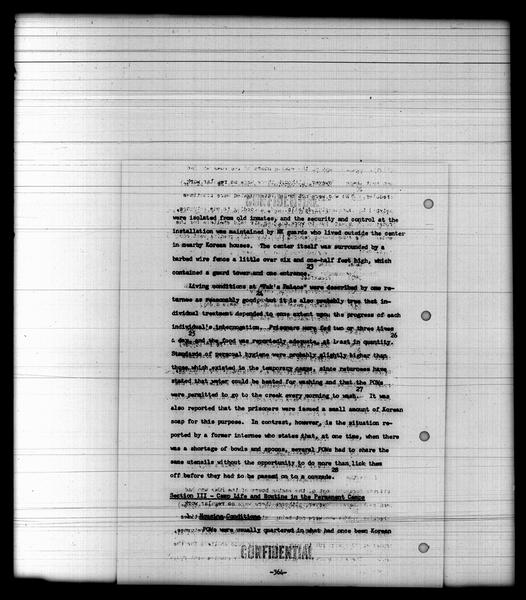 CONFIDENTIAL
were isolated from old inmates, and the security and control at the
installation was maintained by NK guards who lived outside the center
in nearby Korean houses. The center itself was surrounded by a
barbed wire fence a little over six and one-half feet high, which
contained a guard tower and one entrance. 23
Living conditions at "Pak's Palace" were described by one re-
turnee as reasonably good, 24 but it is also probably true that in-
dividual treatment depended to some extent upon the progress of each
individual's interrogation. 25 Prisoners were fed two or three times
a day, and the food was reportedly adequate, at least in quantity. 26
Standards of personal hygiene were probably slightly higher than
those which existed in the temporary camps, since returnees have
stated that water could be heated for washing and that the POWs
were permitted to go to the creek every morning to wash. 27 It was
also reported that the prisoners were issued a small amount of Korean
soap for this purpose. In contrast, however, is the situation re-
ported by a former internee who states that, at one time, when there
was a shortage of bowls and spoons, several POWs had to share the
same utensils without the opportunity to do more than lick them
off before they had to be passed on to a comrade. 28
Section III - Camp Life and Routine in the Permanent Camps
1. Housing Conditions
POWs were usually quartered in what had once been Korean
CONFIDENTIAL
-364-